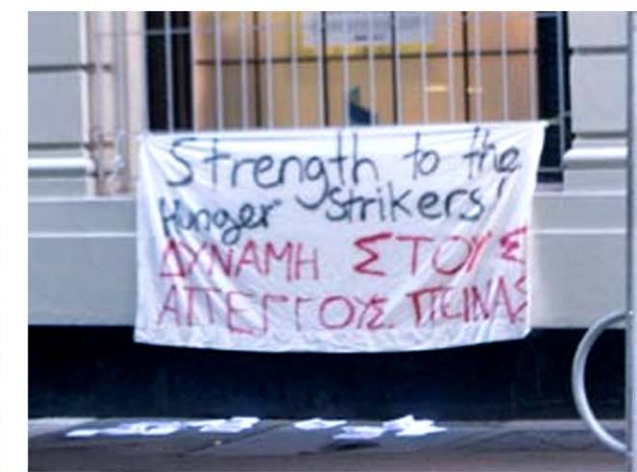 Strength to the
Hunger Strikers!
ΔΥΝΑΜΗ ΣΤΟΥΣ
ΑΠΕΡΓΟΥΣ ΠΕΙΝΑΣ